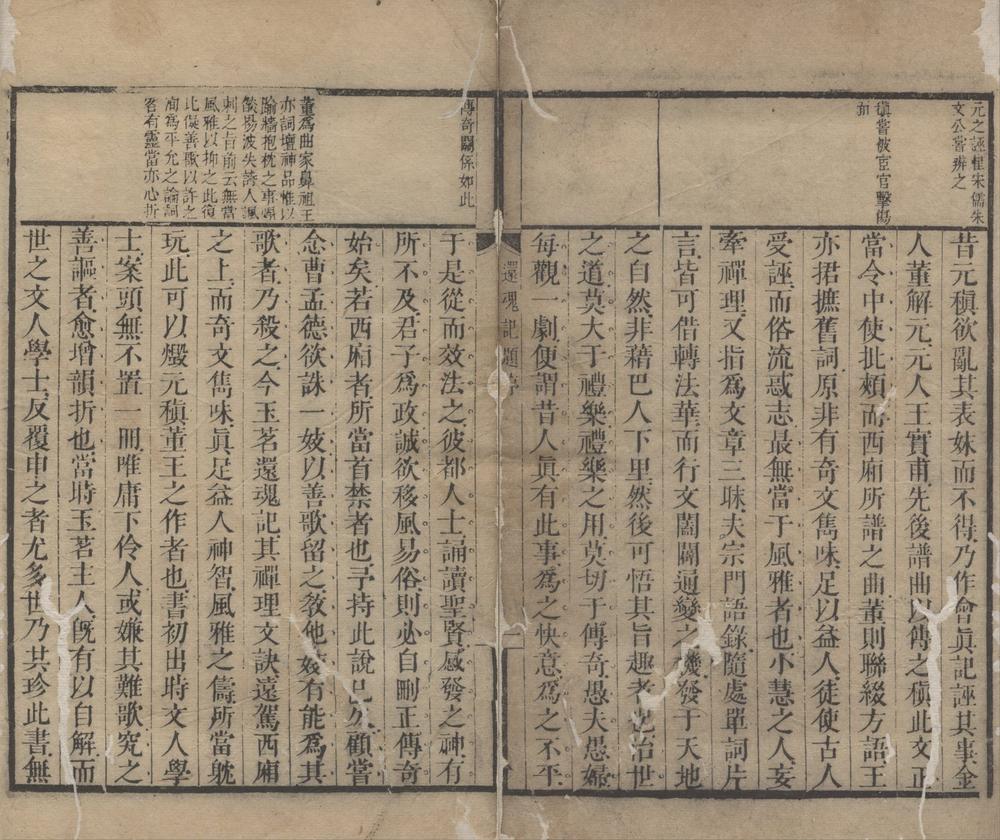 元之誣悝朱儒朱
文公嘗辨之
稹嘗被宦官擊傷
面
昔元稹欲亂其表妹而不得乃作會眞記誣其事金
人董解元元人王實甫先後譜曲以傳之稹此文正
當令中使批頰而西廂所譜之曲董則聯綴方語王
亦捃摭舊詞原非有奇文雋味足以益人徒使古人
受誣而俗流惑志最無當于風雅者也小慧之人妄
牽禪理又指爲文章三昧夫宗門語錄隨處單詞片
言皆可借轉法華而行文闔闢通變之機發于天地
之自然非藉巴人下里然後可悟其旨趣者也治世
之道莫大于禮樂禮樂之用莫切于傳奇愚夫愚婦
每觀一劇便謂昔人眞有此事爲之快意爲之不平
還魂記題序
一
傳奇關係如此
董爲曲家鼻祖王
亦詞壇神品惟以
踰牆抱枕之事煽
燄揚波失詩人諷
刺之旨前云無當
風雅以抑之此復
比儗善歌以許之
洵爲平允之論詞
客有靈當亦心折
于是從而效法之彼都人士誦讀聖賢感發之神有
所不及君子爲政誠欲移風易俗則必自刪正傳奇
始矣若西廂者所當首禁者也予持此說已久顧嘗
念曹孟德欲誅一妓以善歌留之敎他妓有能爲其
歌者乃殺之今玉茗還魂記其禪理文訣遠駕西廂
之上而奇文雋味眞足益人神智風雅之儔所當躭
玩此可以燬元稹董王之作者也書初出時文人學
士案頭無不置一冊唯庸下伶人或嫌其難歌究之
善謳者愈增韻折也當時玉茗主人旣有以自解而
世之文人學士反覆申之者尤多世乃共珍此書無